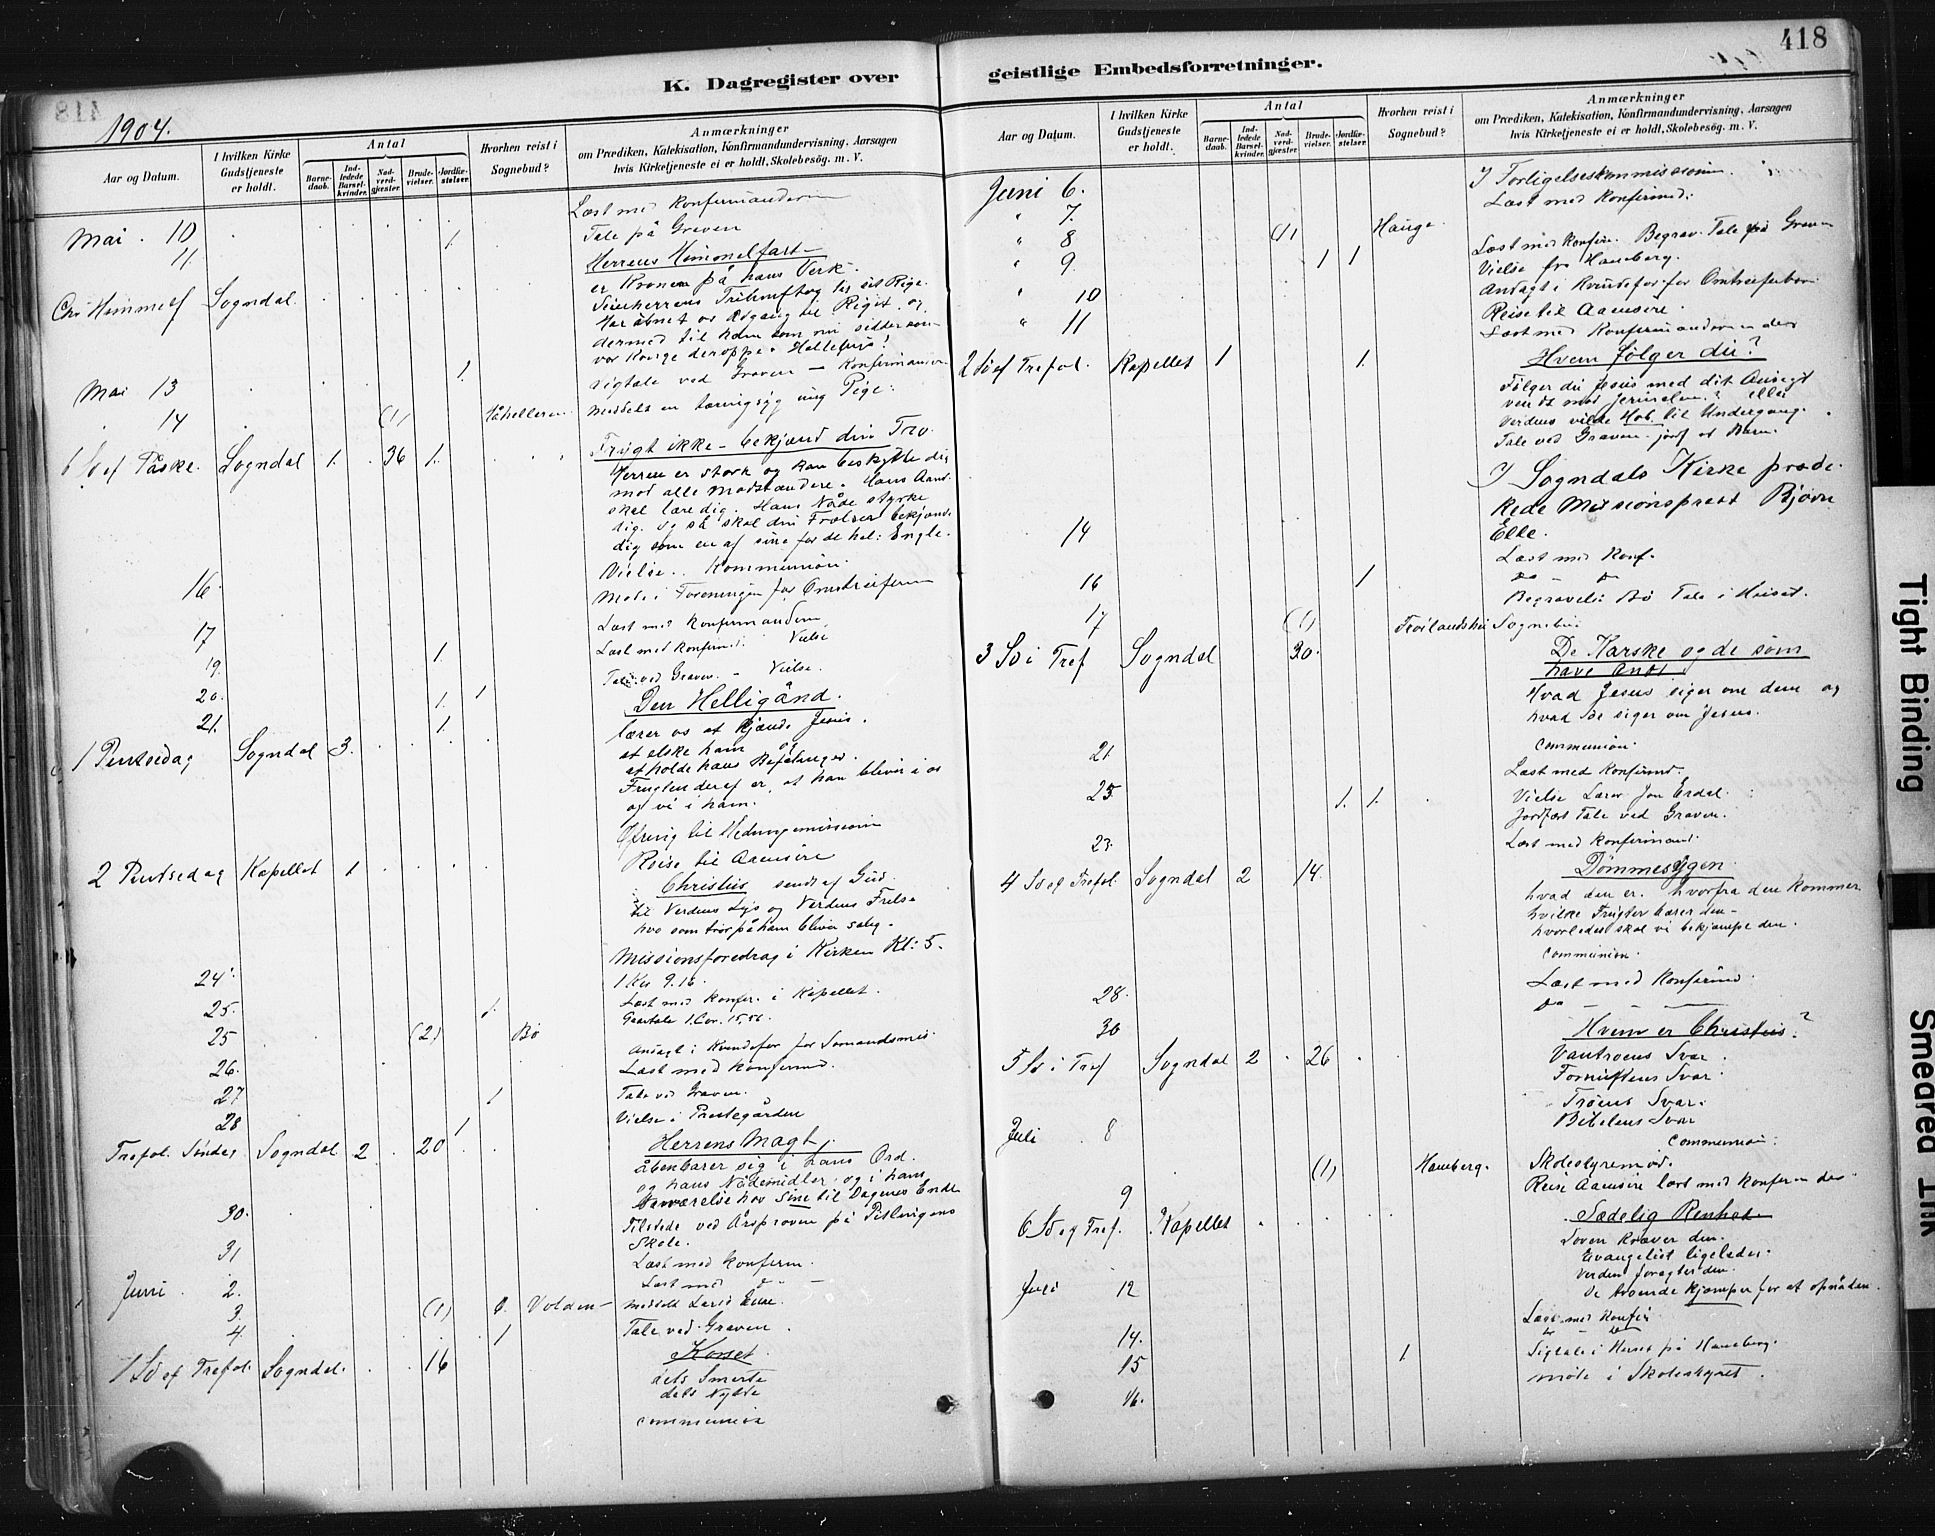 418
K. Dagregister over geistlige Embedsforretninger.
1904.
Aar og Datum.
I hvilken Kirke Gudstjeneste er holdt.
Antal
Barnedaab.
Indledede Barselkvinder.
Nadverdgjæster
Brudevielser.
Jordfæstelser.
Hvorhen reist i Sognebud?
Anmærkninger
om Prædiken, Katekisation, Konfirmandundervisning, Aarsagen
hvis Kirketjeneste ei er holdt, Skolebesøg. m. V.
Mai 10 Læst med Konfirmanderne
11 1. Tale på Graven
Chr Himmelf Sogndal. Herrens Himmelfart
er Kronen på hans Verk.
har åbnet os Adgang til Riget og
dermed til ham som nu sidder som
vor Konge deroppe. Halleluja!
Mai 13 1. Ligtale ved Graven – Konfirmanderne
14 (1) Meddelt en tæringsyg ung Pige.
6 Sd ef Påske. Sogndal 1. 36 1. Frygt ikke – bekjend din Tro.
Herren er stærk og kan beskytte dig
mod alle Modstandere. Hans Aand
skal lære dig. Hans Nåde styrke
dig. og så skal din Frelser bekjende
dig som en af sine for de hel: Engle.
Vielse. Kommunion.
16 Møde i Foreningen for Omstreiferne
17 Læst med Konfirmanderne
19. 1. Læst med Konfirmd. Vielse
20. 1. 1 Tale ved Graven. – Vielse.
21. 1.
1 Pintsedag Sogndal 3. Den Helligånd.
lærer os at kjende Jesus.
at elske ham og
at holde hans Befalinger.
Frugten deraf er, at han bliver i os
og vi i ham.
Ofring til Hedningemissionen
Reise til Aaensire
2 Pintsedag Kapellet 1 Christus sendt af Gud
til Verdens Lys og Verdens Frelse
hvo som tror på ham bliver salig.
Missionsforedrag i Kirken Kl: 5.
24. 1 Kor 9.16.
25. 1. Læst med Konfir. i Kapellet.
Gravtale 1 Cor. 15,56.
25 (2) Bø Andagt i Kvindefor for Sømandsmis.
26. Læst med Konfirmd.
27 1 Tale ved Graven.
28 1 Vielse i Prestegården
Trefol. Søndag Sogndal 2 20 Herrens Magt
åbenbarer sig i hans Ord.
og hans Nådemidler, og i hans
Nærværelse hos sine til Dagenes Ende
30. Tilstede ved Årsprøven på
Skole.
31 Læst med Konfirm.
Juni 2. Læst med do –
3. (1) Volden
4 1 Tale ved Graven.
1 Sd ef Trefol. Sogndal. 16 Korset
dets Smerte
dets Nytte
communion
Aar og Datum.
I hvilken Kirke Gudstjeneste er holdt.
Antal
Barnedaab.
Indledede Barselkvinder.
Nadverdgjæster
Brudevielser.
Jordfæstelser.
Hvorhen reist i Sognebud?
Anmærkninger
om Prædiken, Katekisation, Konfirmandundervisning, Aarsagen
hvis Kirketjeneste ei er holdt, Skolebesøg. m. V.
Juni 6. I Forligelseskommissionen
" 7. Læst med Konfirmd.
" 8 (1) Hauge. Læst med Konfirm. Begrav. Tale på Graven
" 9 1 1 Vielse fra Haneberg.
" 10 Andagt i Kvindefor for Omstreiferbørn
Reise til Aaensire.
" 11 Læst med Konfirmanderne der
2 Sd ef Trefol. Kapellet 1 1. Hvem følger du?
Følger du Jesus med dit Ansigt
vendt mod Jerusalem? eller
Verdens vilde Hob til Undergang.
Tale ved Graven. jordf et Barn.
I Sogndals Kirke prædikede Missionsprest Bjørn
Elle.
14 Læst med Konf.
do – do
16 1 Begravelse Bø Tale i Huset.
17 (1) Frøilandshei Sognebud
3 Sd i Tref Sogndal 30. De Karske og de som
have ondt
Hvad Jesus siger om dem og
hvad de siger om Jesus.
communion.
21 Læst med Konfirmd.
25 1. 1. Vielse Lærer Jon Erdal.
Jordfæst Tale ved Graven.
23. Læst med Konfirmand.
4 Sd ef Trefol. Sogndal 2 14. Dømmesygen
hvad den er. hvorfra den kommer
hvilke Frugter bærer den –
hvorledes skal vi bekjæmpe den.
communion.
28. Læst med Konfirmd
30 do –
5 Sd i Tref Sogndal 2 26 Hvem er Christus?
Vantroens Svar.
Fornuftens Svar.
Troens Svar.
Bibelens Svar
communion.
Juli 8 (1) Haneberg. Skolestyremød.
9 Reise Aaensire læst med Konfirm der
6 Sd ef Tref. Kapellet Sædelig Renhet
Loven kræver den.
Evangeliet ligeledes.
Verden foragter den.
De troende kjæmper for at opnå den.
Juli 12 Læst med Konfir.
14. do – do
15 1 Ligtale i Huset på Haneberg.
16. møde i Skolestyret.
Tight Binding
Smeared Ink